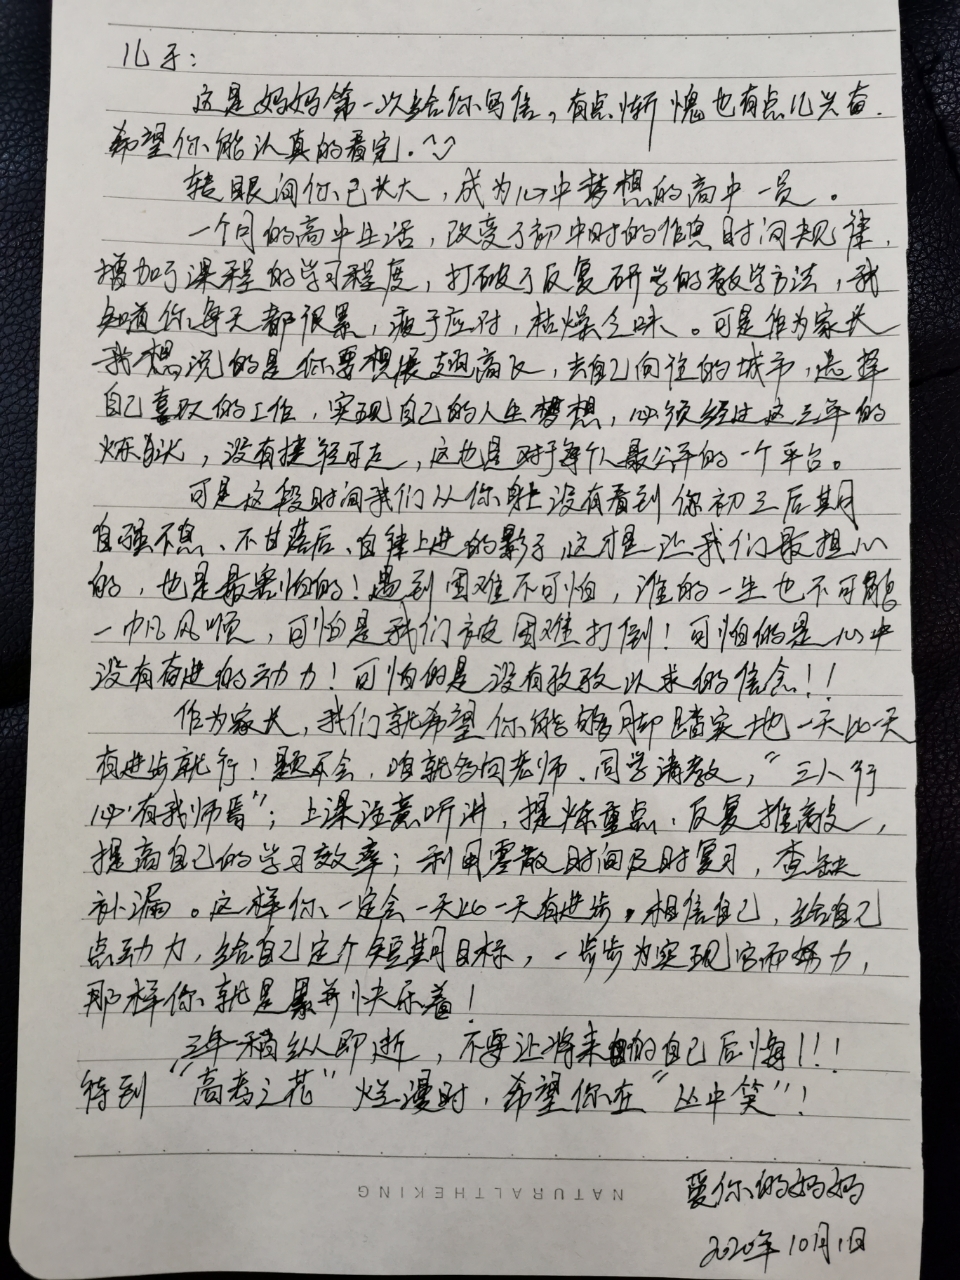 儿子:
这是妈妈第一次给你写信，有点惭愧也有点儿兴奋.
希望你能认真的看完.
转眼间你已长大，成为心中梦想的高中一员。
一个月的高中生活，改变了初中时的作息时间规律，
增加了课程的学习程度，打破了反复研学的教学方法，我
知道你每天都很累，疲于应对，枯燥乏味。可是作为家长
我想说的是你要想展翅高飞，去自己向往的城市，选择
自己喜欢的工作，实现自己的人生梦想，必须经过这三年的
炼狱，没有捷径可走，这也是对于每个人最公平的一个平台。
可是这段时间我们从你身上没有看到你初三后期
自强不息、不甘落后、自律上进的影子，这才是让我们最担心
的，也是最害怕的！遇到困难不可怕，谁的一生也不可能
一帆风顺，可怕是我们被困难打倒！可怕的是心中
没有奋进的动力！可怕的是没有孜孜以求的信念！！
作为家长，我们就希望你能够脚踏实地一天比一天
有进步就行！题不会，咱就多问老师、同学请教，“三人行
必有我师焉”；上课注意听讲，提炼重点、反复推敲，
提高自己的学习效率；利用零散时间及时复习，查缺
补漏。这样你一定会一天比一天有进步，相信自己，给自己
点动力，给自己定个短期目标，一步步为实现它而努力，
那样你就是累并快乐着！
三年稍纵即逝，不要让将来的自己后悔！！！
待到“高考之花”烂漫时，希望你在“丛中笑”！
NATURALTHEKING
爱你的妈妈
2020年10月1日